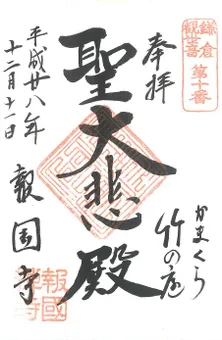 鎌倉
観音
第十番
奉拝
かまくら
竹の庭
聖大悲殿
平成廿八年
十二月十一日
報国寺
報國
禅寺